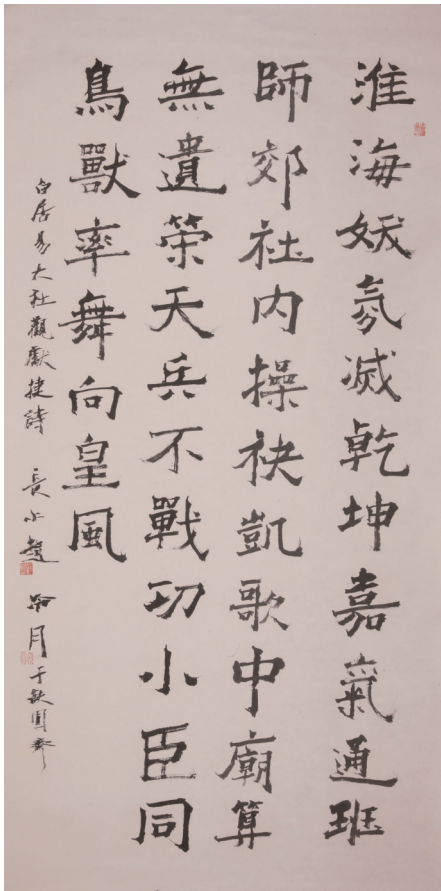 淮海妖氛滅乾坤嘉氣通班
師郊社内操袂凱歌中廟算
無遺榮天兵不戰功小臣同
鳥獸率舞向皇風
白居易大社觀獻捷詩 月于缺圓齋